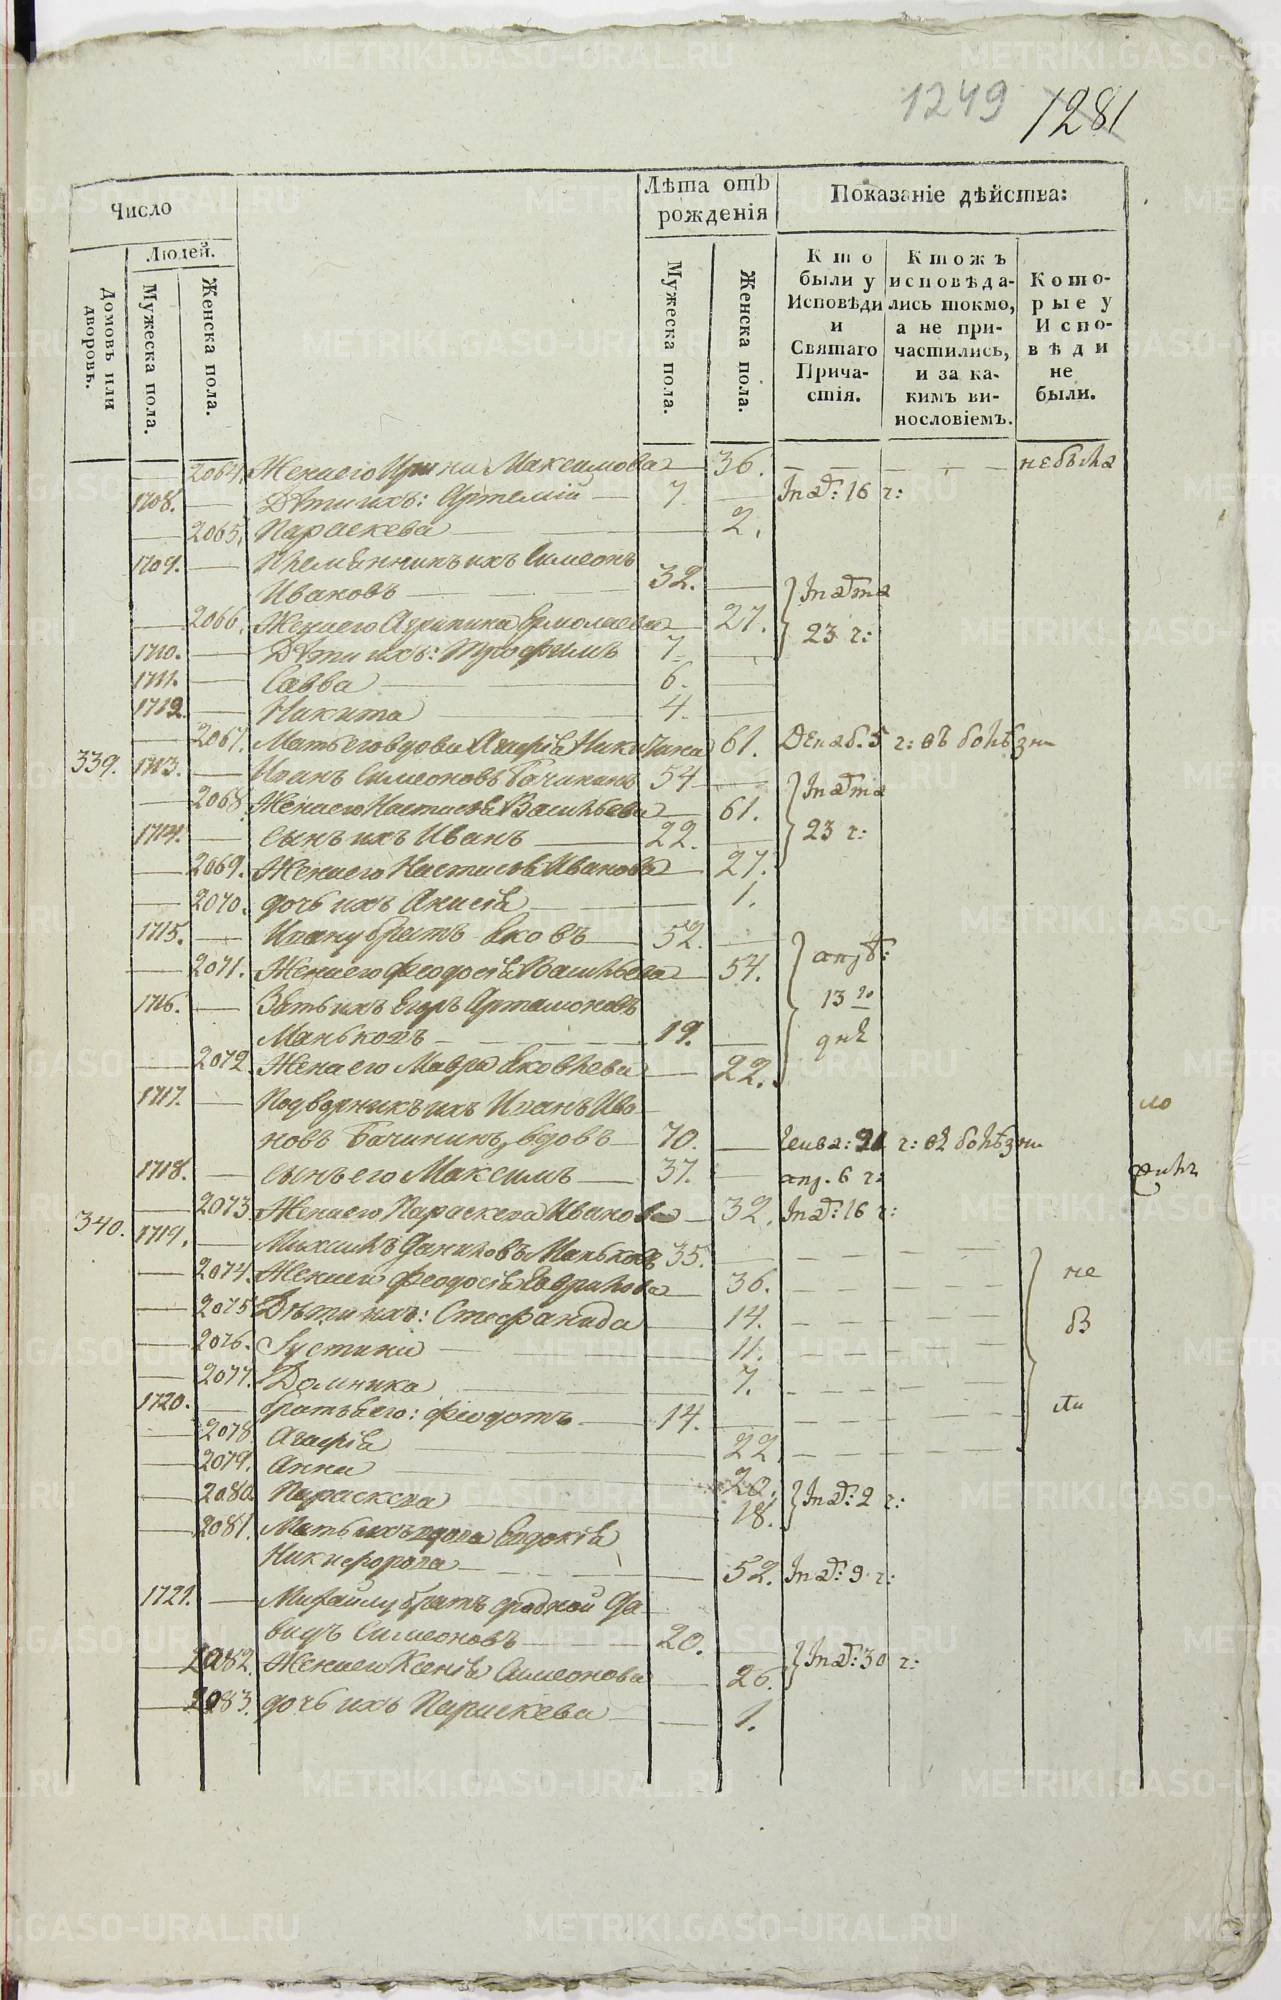 1249 1281
Число
Лѣта отъ рожденія
Показаніе дѣйства:
Людей.
Домовъ или дворовъ.
Мужеска пола.
Женска пола.
Мужеска пола.
Женска пола.
Кто были у Исповѣди и Святаго Причастія.
Ктожъ исповѣдались токмо, а не причастились, и за какимъ винословіемъ.
Которые у Исповѣди не были.
2064. Жена его Ирина Максимова 36. не была
1708. Дѣти ихъ: Артемій 7.
16 ч:
2065. Параскева 2.
1709. Племянникъ ихъ Симеонъ
Ивановъ 32.
2066. Жена его Агрипина Ермолаева 27.
23 ч:
1710. Дѣти ихъ: Трофимъ 7.
1711. Савва 6.
1712. Никита 4.
2067. Мать его вдова Агафія Никитина 61. Декаб. 5 ч: въ болѣзни
339. 1713. Иоанъ Симеоновъ 54
2068. Жена его Настасія Васильева 61.
1714. сынъ ихъ Иванъ 22. 23 ч:
2069. Жена его Настасія Иванова 27.
2070. дочь ихъ Анисія 1.
1715. Ивану братъ Яковъ 52.
2071. Жена его Феодосія Васильева 54.
1716. Зять ихъ Егоръ Артамоновъ 13 го
Маньковъ 19. дня
2072. Жена его Мавра Яковлева 22.
1717. Подворникъ ихъ Иванъ Ива
новъ Бачининъ, вдовъ 70. 21 ч: въ болѣзни
1718. сынъ его Максимъ 37. апр. 6 ч:
2073. Жена его Параскева Иванова 32. 16 ч:
340. 1719. Михаилъ Даниловъ Маньковъ 35.
2074. Жена его Феодосія Гаврилова 36. не
2075. Дѣти ихъ: Стефанида 14.
2076. Устинія 11. бы
2077. Домника 7.
1720. братъ его: Феодотъ 14. ли
2078. Агафія 22
2079. Анна 20.
2080. Параскева 18. 2 ч:
2081. Мать ихъ вдова Евдокія
Никифорова 52. 9 ч:
1721. Михаилу братъ сродной Да
видъ Симеоновъ 20.
2082. Жена его Ксенія Симеонова 26. 30 ч:
2083. дочь ихъ Параскева 1.
METRIKI.GASO-URAL.RU